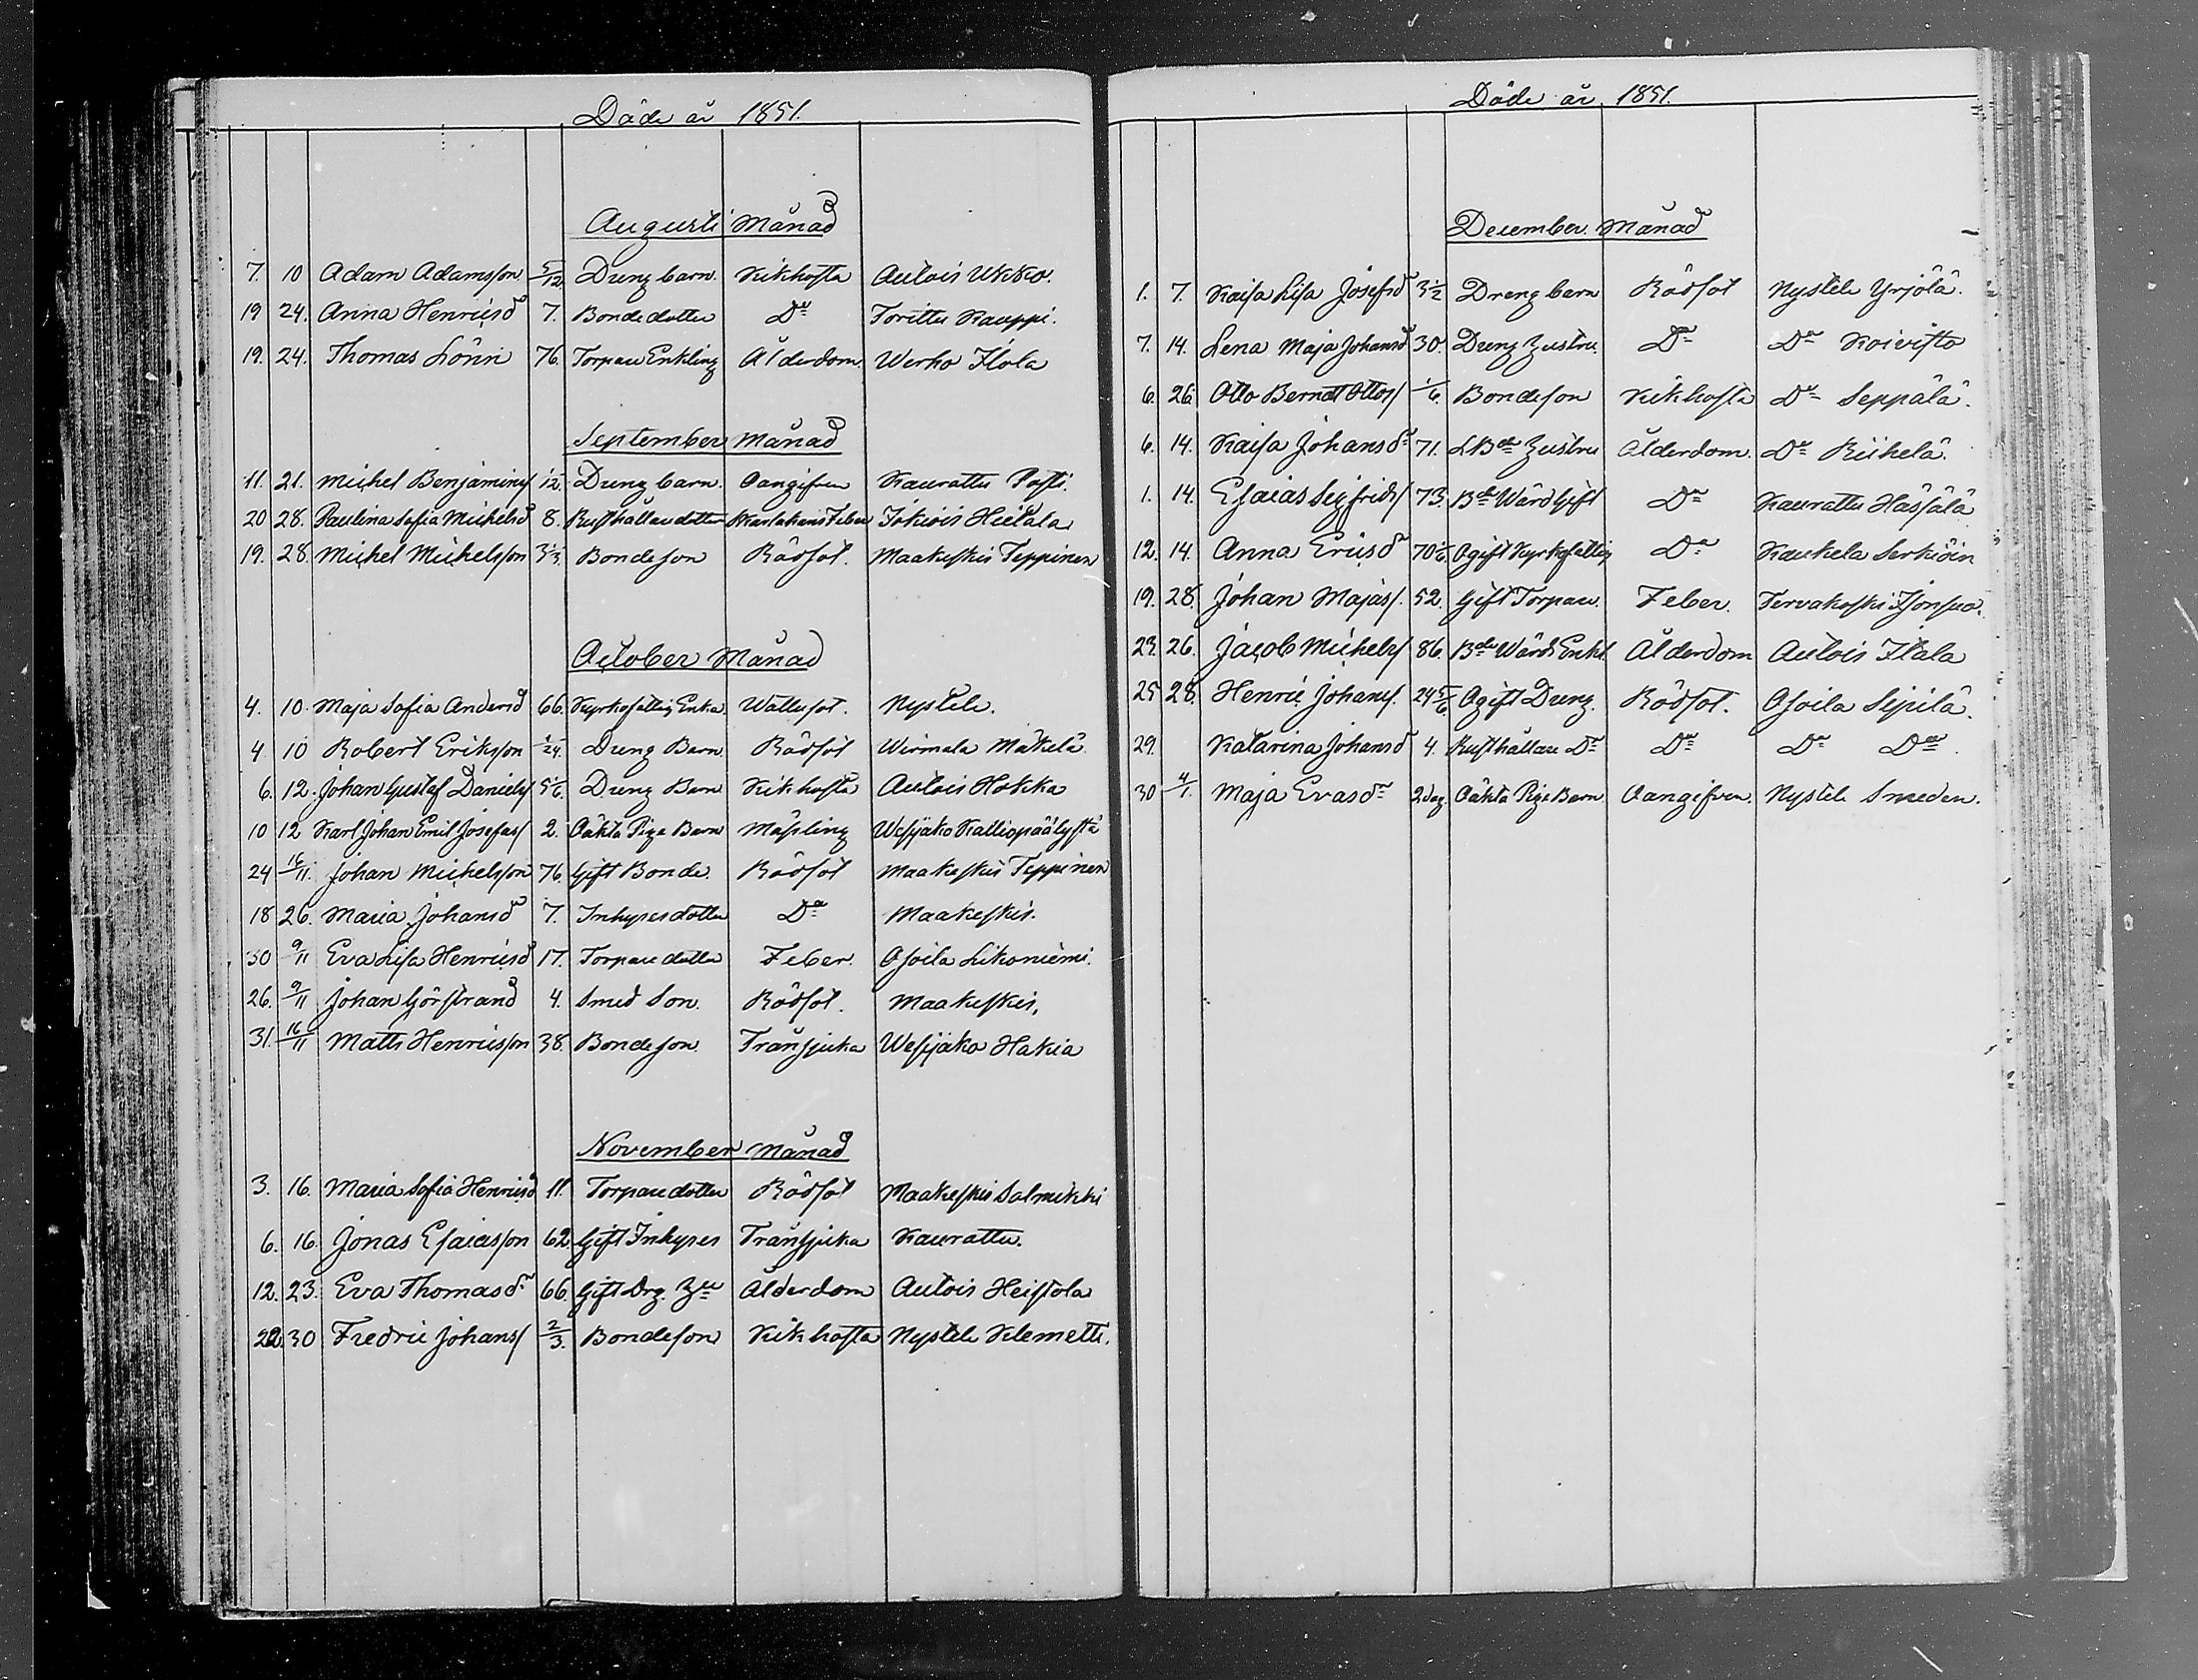 Döde år 1851.
Augusti Månad
7. 10 Adam Adamsson 5/12 Dreng barn. Kikhosta Autois Ukko.
19 24. Anna Henricsd 7. Bonde dotter Do Torittu Kauppi.
19. 24. Thomas Lönn 76. Torpare Enkling Ålderdom. Werho Ilola
September Månad
11. 21. Michel Benjamins 1/12. Dreng barn. Oangifven Kaurattu Pasti.
20 28. Paulina Sofia Michelsd 8. Rusthållare dotter Skarlakans Feber Jokiois Hietala
19. 28. Michel Michelsson 3 1/3. Bondeson Rödsot. Maakeskis Teppinen
October Månad
4. 10. Maja Sofia Andersd 66. Kyrkofattig Enka. Wattusot. Nystele.
4 10 Robert Eriksson 1/24. Dreng Barn. Rödsot Wirmala Mäkelä.
6. 12. Johan Gustaf Daniels 5 1/6. Dreng Barn Kikhosta Autois Hokka
10 12 Karl Johan Emil Josefas 2. Oäkta Piga Barn Mässling Wesijako Kalliopäälystä
24 16/11. Johan Michelsson 76. Gift Bonde. Rödsot Maakeskis Teppinen
18 26. Maria Johansd 7. Inhyses dotter Do Maakeskis.
30 9/11 Eva Lisa Henricsd 17. Torpare dotter Feber. Osoila Likoniemi.
26. 9/11 Johan Görstrand 4. Smed Son. Rödsot. Maakeskis.
31. 16/11 Matts Henricsson 38. Bondeson. Trånsjuka Wesijako Hakia
November Månad
3. 16. Maria Sofia Henricsd 11. Torpare dotter Rödsot Maakeskis Salmikki
6. 16. Jonas Esaiasson 62. Gift Inhyses Trånsjuka Kaurattu.
12. 23. Eva Thomasdr 66. Gift Drg. Ålderdom Autois Heistola
22. 30 Fredric Johans 2/3. Bondeson Kikhosta Nystele Klemetti.
Döde år 1851.
December Månad
1. 7. Kaisa Lisa Josefsd 3 1/2 Dreng barn Rödsot Nystele Yrjölä.
7. 14. Lena Maja Johansd 30. Dreng hustru. Do Do Koivisto
6. 26. Otto Berndt Ottos 1/6. Bondeson Kikhosta Do Seppälä.
6. 14. Kaisa Johansdr 71. hustru Ålderdom. Do Riihelä.
1. 14. Esaias Sigfrids 73. Bde Wård Gift Do Kaurattu Hassälä
12. 14. Anna Ericsdr 70 1/6. Ogift Kyrkofattig Do Kaukela Serkiöin
19. 28. Johan Majas. 52. Gift Torpare. Feber. Tervakoski Isonsuo.
23. 26. Jacob Michels 86. Bde Wårds Enkl. Ålderdom Autois Ilala
25 28. Henric Johans. 24 5/6. Ogift Dreng. Rödsot. Osoila Sipilä.
29. Katarina Johansd 4. Rusthållare Dr Do Do Do.
30 4/1. Maja Evasdr 2 dag. Oäkta Piga Barn Oangifven. Nystele Smeden.